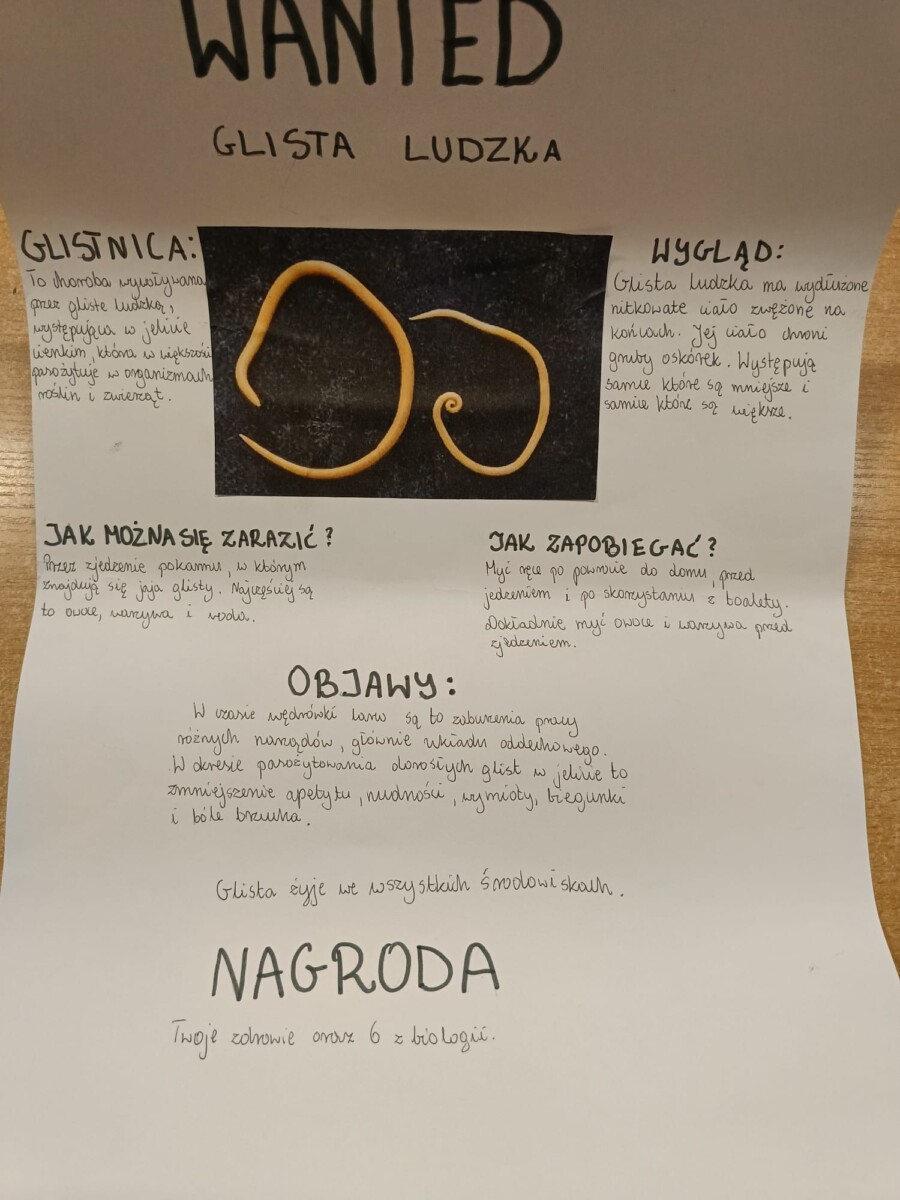 WANTED
GLISTA LUDZKA
GLISTNICA:
To choroba wywoływana
przez glistę ludzką,
występująca w jelicie
cienkim, która w większości
pasożytuje w organizmach
roślin i zwierząt.
WYGLĄD:
Glista ludzka ma wydłużone
nitkowate ciało zwężone na
końcach. Jej ciało chroni
gruby oskórek. Występują
samce które są mniejsze i
samice które są większe.
JAK MOŻNA SIĘ ZARAZIĆ?
Przez zjedzenie pokarmu, w którym
znajdują się jaja glisty. Najczęściej są
to owoce, warzywa i woda.
JAK ZAPOBIEGAĆ?
Myć ręce po powrocie do domu, przed
jedzeniem i po skorzystaniu z toalety.
Dokładnie myć owoce i warzywa przed
zjedzeniem.
OBJAWY:
W czasie wędrówki larw są to zaburzenia pracy
różnych narządów, głównie układu oddechowego.
W okresie pasożytowania dorosłych glist w jelicie to
zmniejszenie apetytu, nudności, wymioty, biegunki
i bóle brzucha.
Glista żyje we wszystkich środowiskach.
NAGRODA
Twoje zdrowie oraz 6 z biologii.